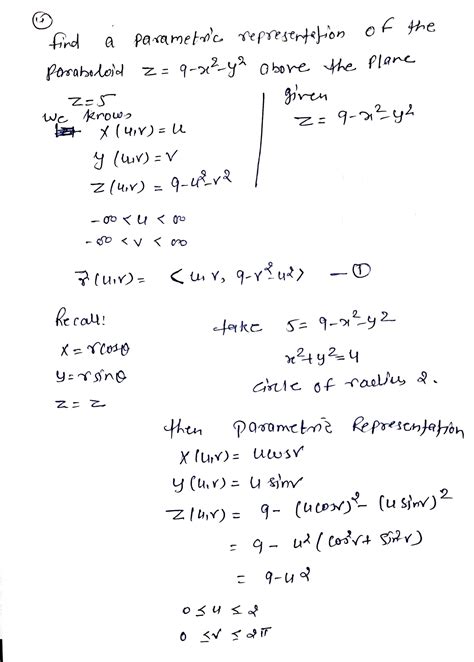 (15)
find a parametric representation of the
paraboloid z = 9-x²-y² above the plane
z=5
we knows
x(u,v) = u
y(u,v) = v
z(u,v) = 9-u²-v²
-∞ < u < ∞
-∞ < v < ∞
given
z = 9-x²-y²
r(u,v) = <u,v, 9-v²-u²> — ①
Recall:
x = rcosθ
y = rsinθ
z = z
take 5 = 9-x²-y²
x²+y²=4
circle of radius 2.
then parametric Representation
x(u,v) = ucosv
y(u,v) = u sinv
z(u,v) = 9 - (ucosv)² - (u sinv)²
= 9 - u² (cos²v + sin²v)
= 9-u²
0 ≤ u ≤ 2
0 ≤ v ≤ 2π